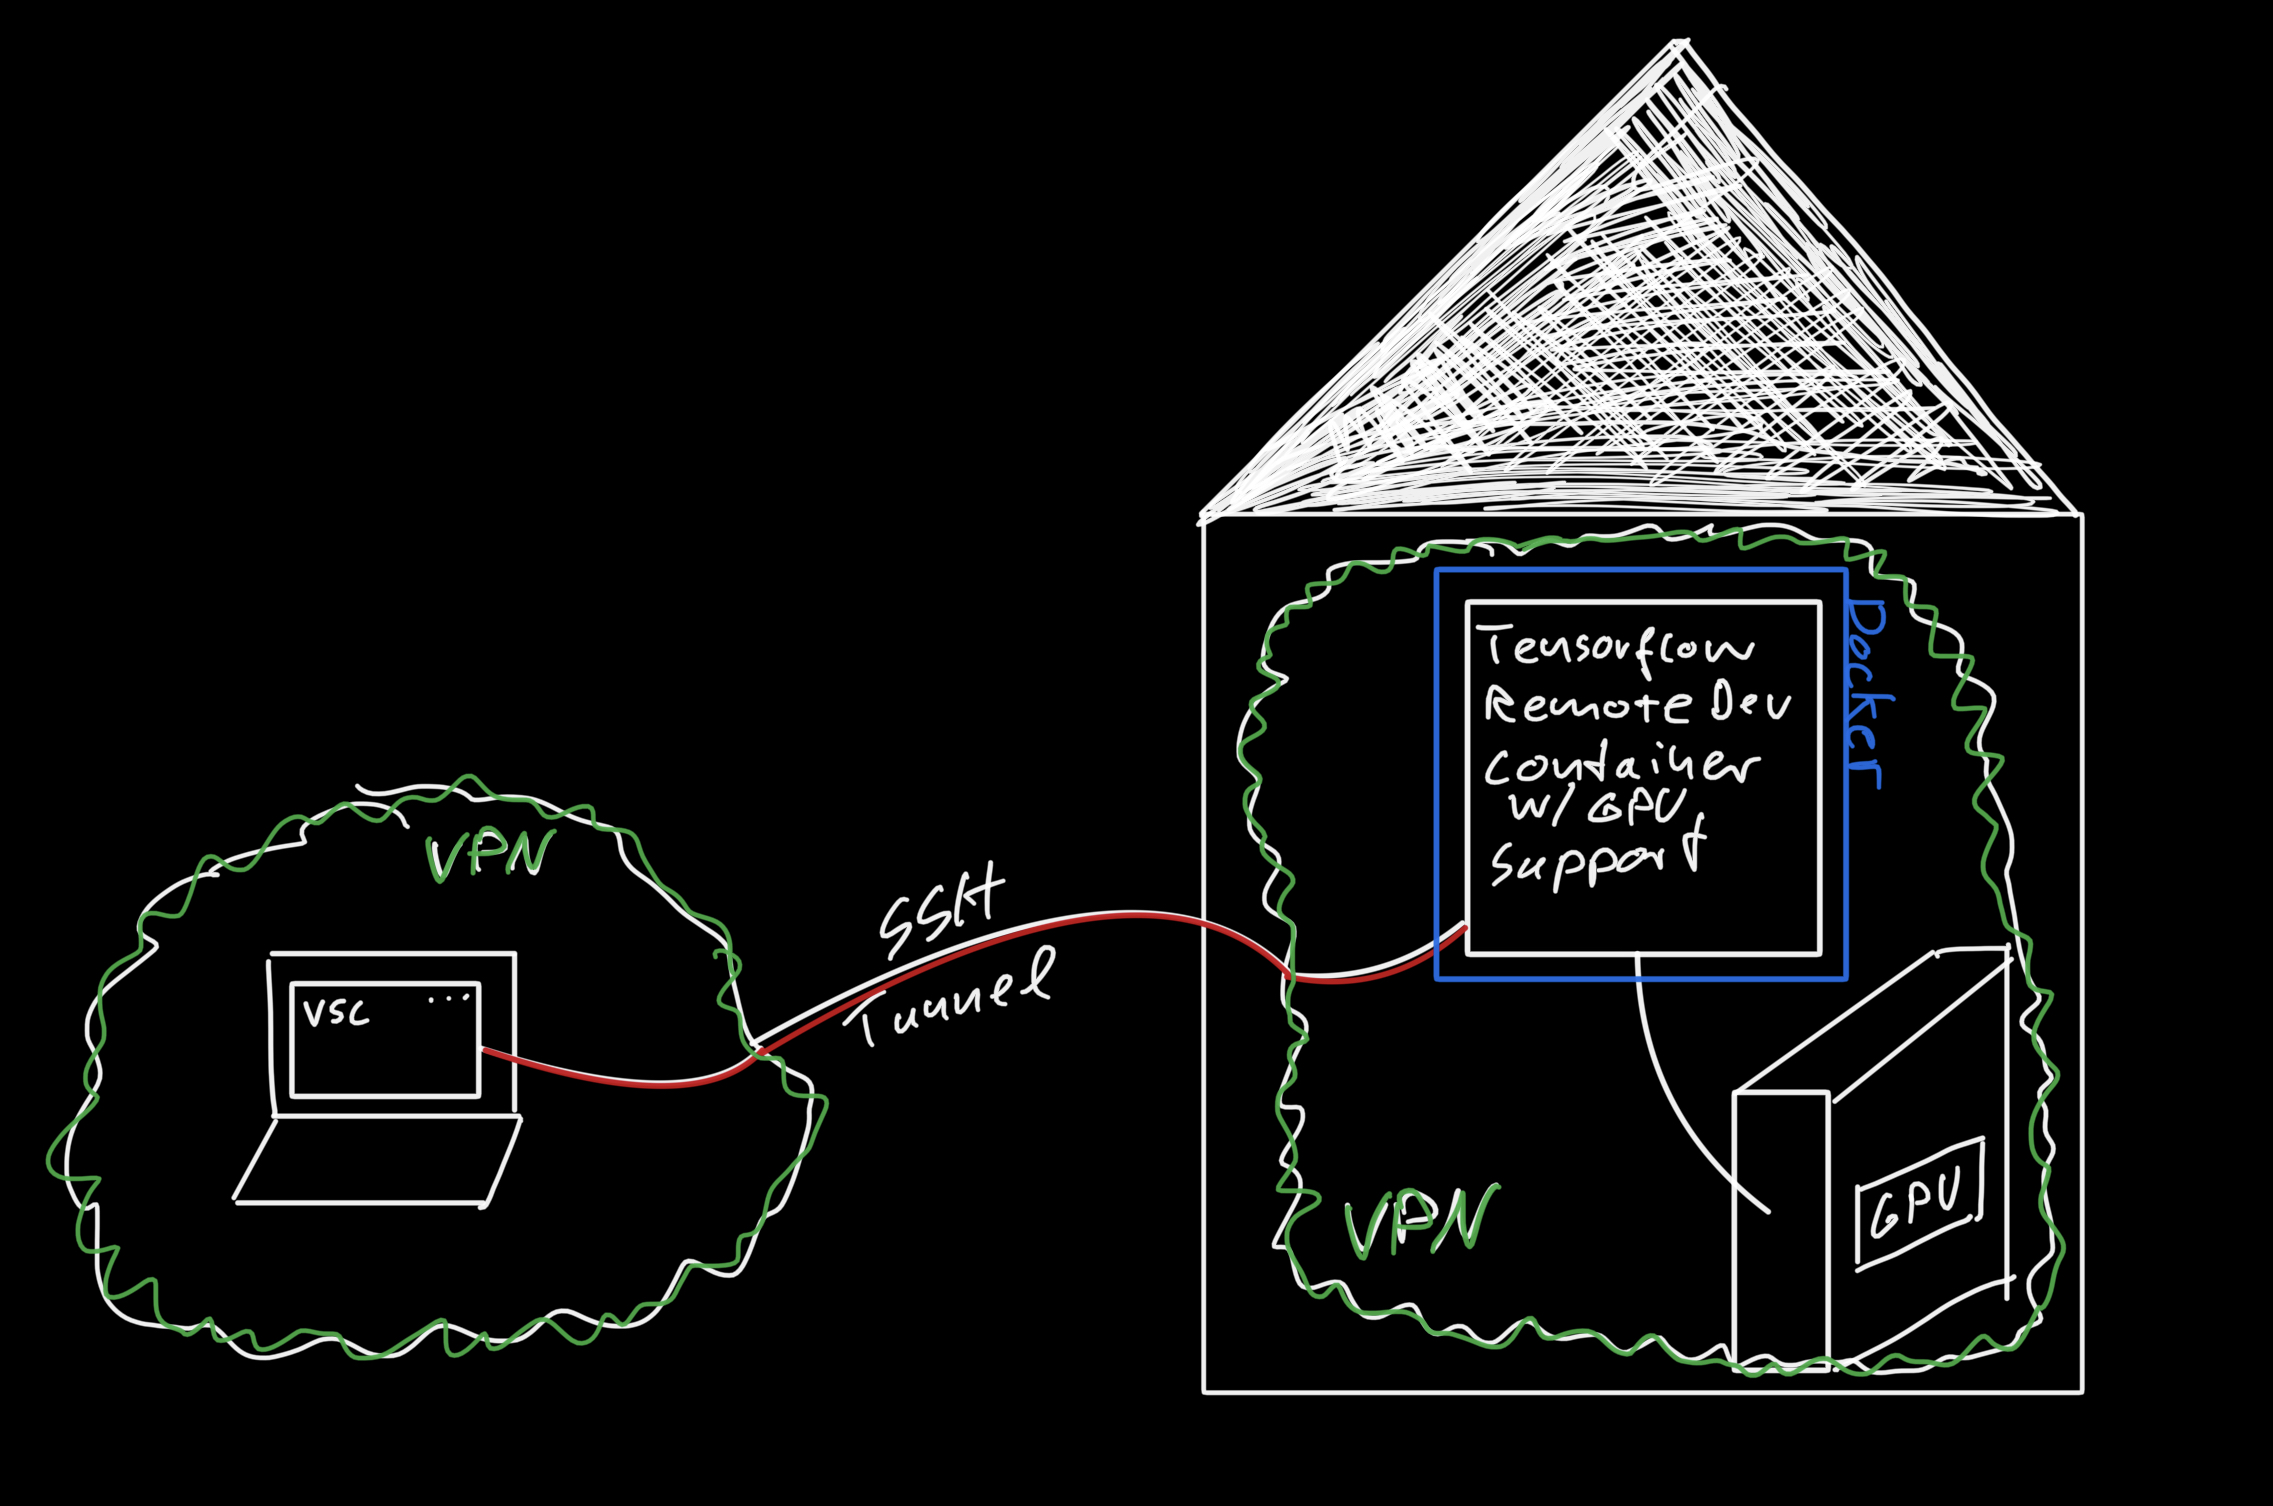 VPN
VSC ...
SSH
Tunnel
Tensorflow
Remote Dev
Container
w/ GPU
Support
Docker
VPN
GPU